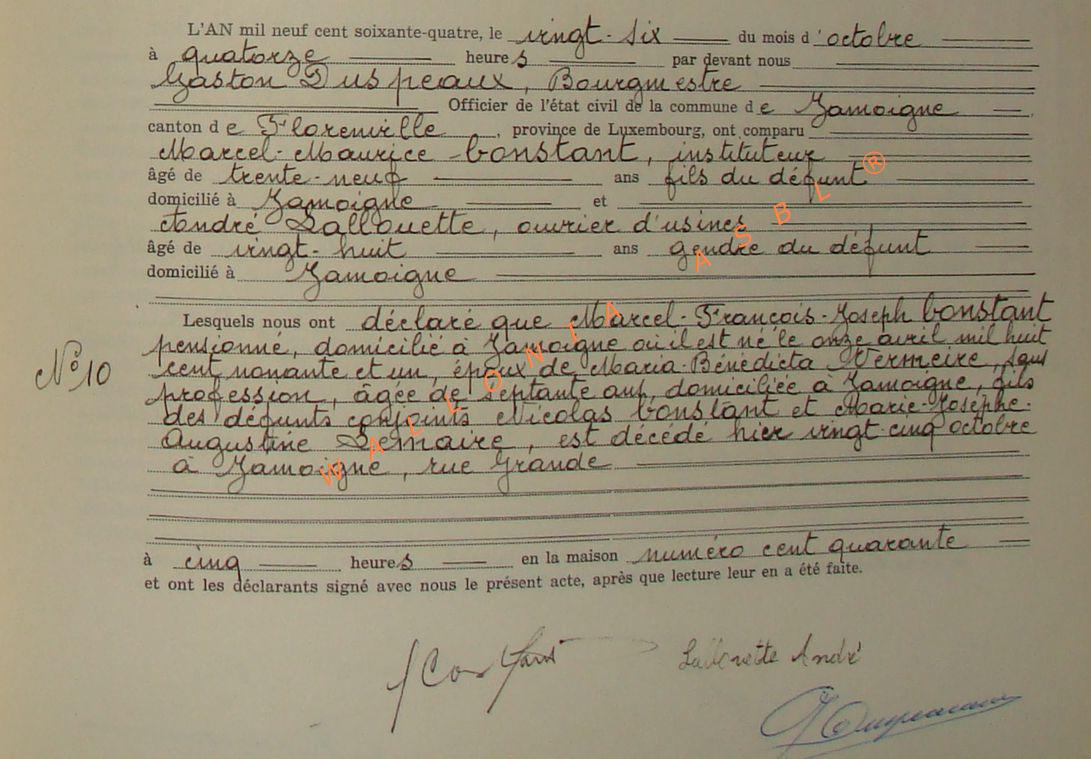 L'AN mil neuf cent soixante-quatre, le vingt-six du mois d'octobre
à quatorze heures par devant nous
Gaston Duspeaux, Bourgmestre
Officier de l'état civil de la commune de Jamoigne
canton de Florenville, province de Luxembourg, ont comparu
Marcel-Maurice Constant, instituteur
âgé de trente-neuf ans fils du défunt
domicilié à Jamoigne et
André Lallouette, ouvrier d'usines
âgé de vingt-huit ans gendre du défunt
domicilié à Jamoigne
Lesquels nous ont déclaré que Marcel-François-Joseph Constant
pensionné, domicilié à Jamoigne où il est né le onze avril mil huit
cent nonante et un, époux de Maria-Bénédicta Vermeire, sans
profession, âgée de septante ans, domiciliée à Jamoigne, fils
des défunts conjoints Nicolas Constant et Marie-Josèphe-
Augustine Lemaire, est décédé hier vingt-cinq octobre
à Jamoigne, rue Grande
N° 10
à cinq heures en la maison numéro cent quarante
et ont les déclarants signé avec nous le présent acte, après que lecture leur en a été faite.
Constant Lallouette André
WALLONIA ASBL ®